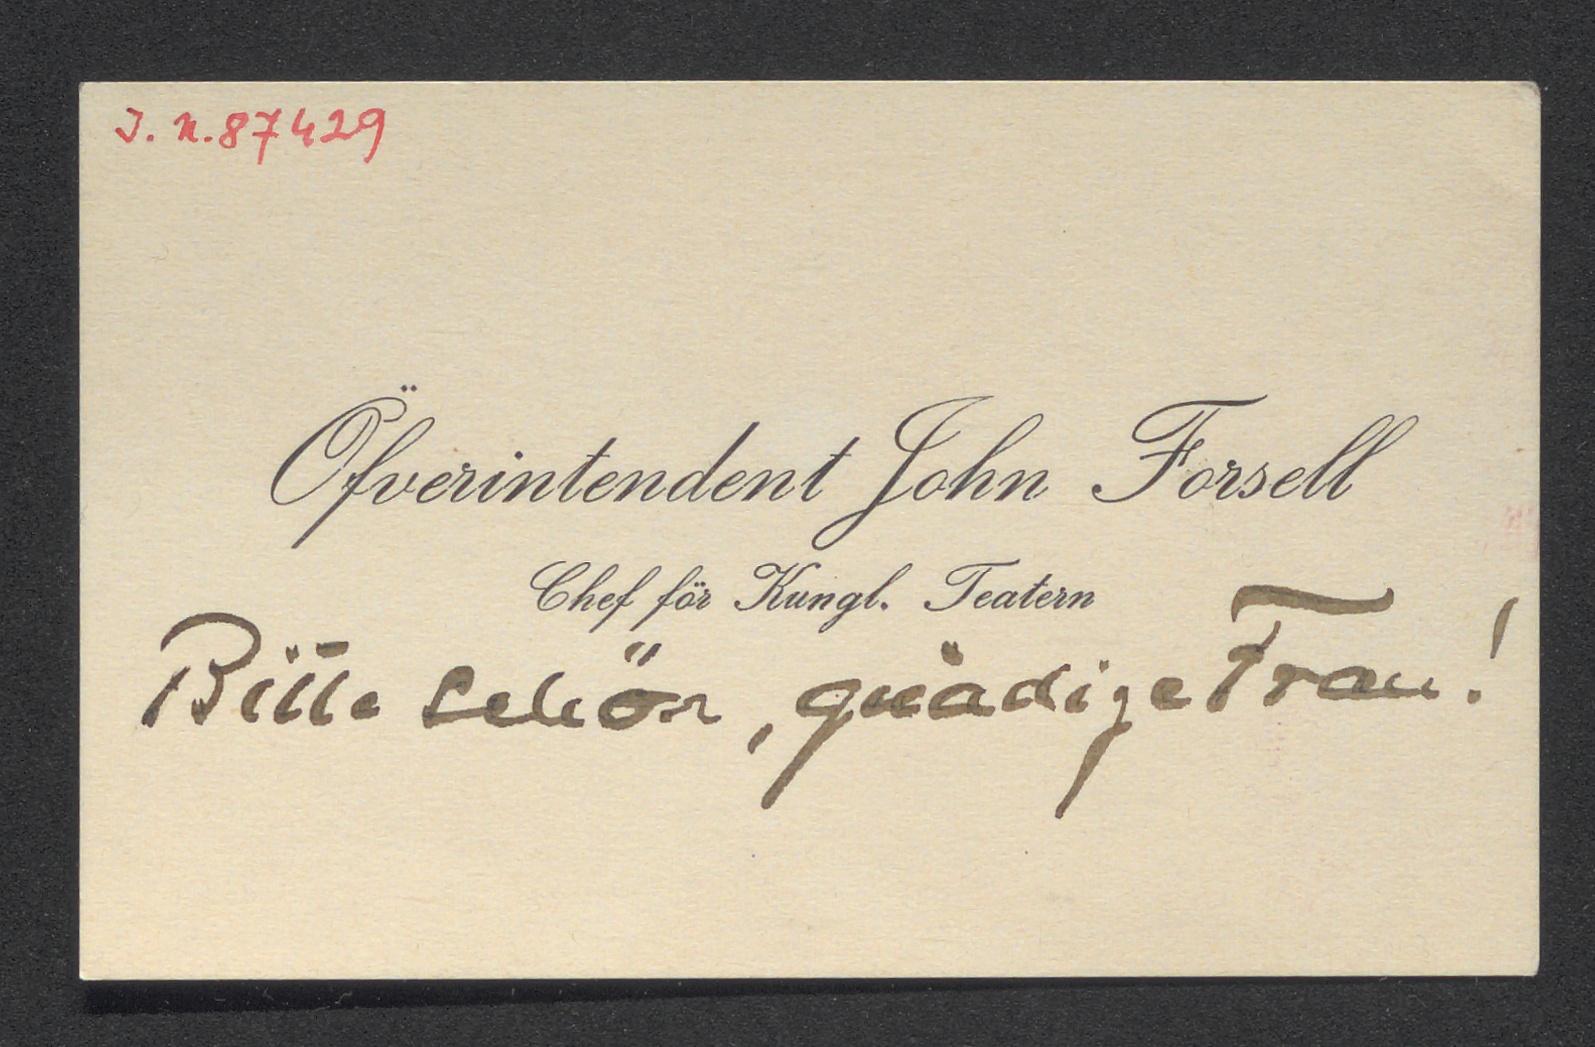 J. N. 87429
Öfverintendent John Forsell
Chef för Kungl. Teatern
Bitte schön, gnädige Frau!